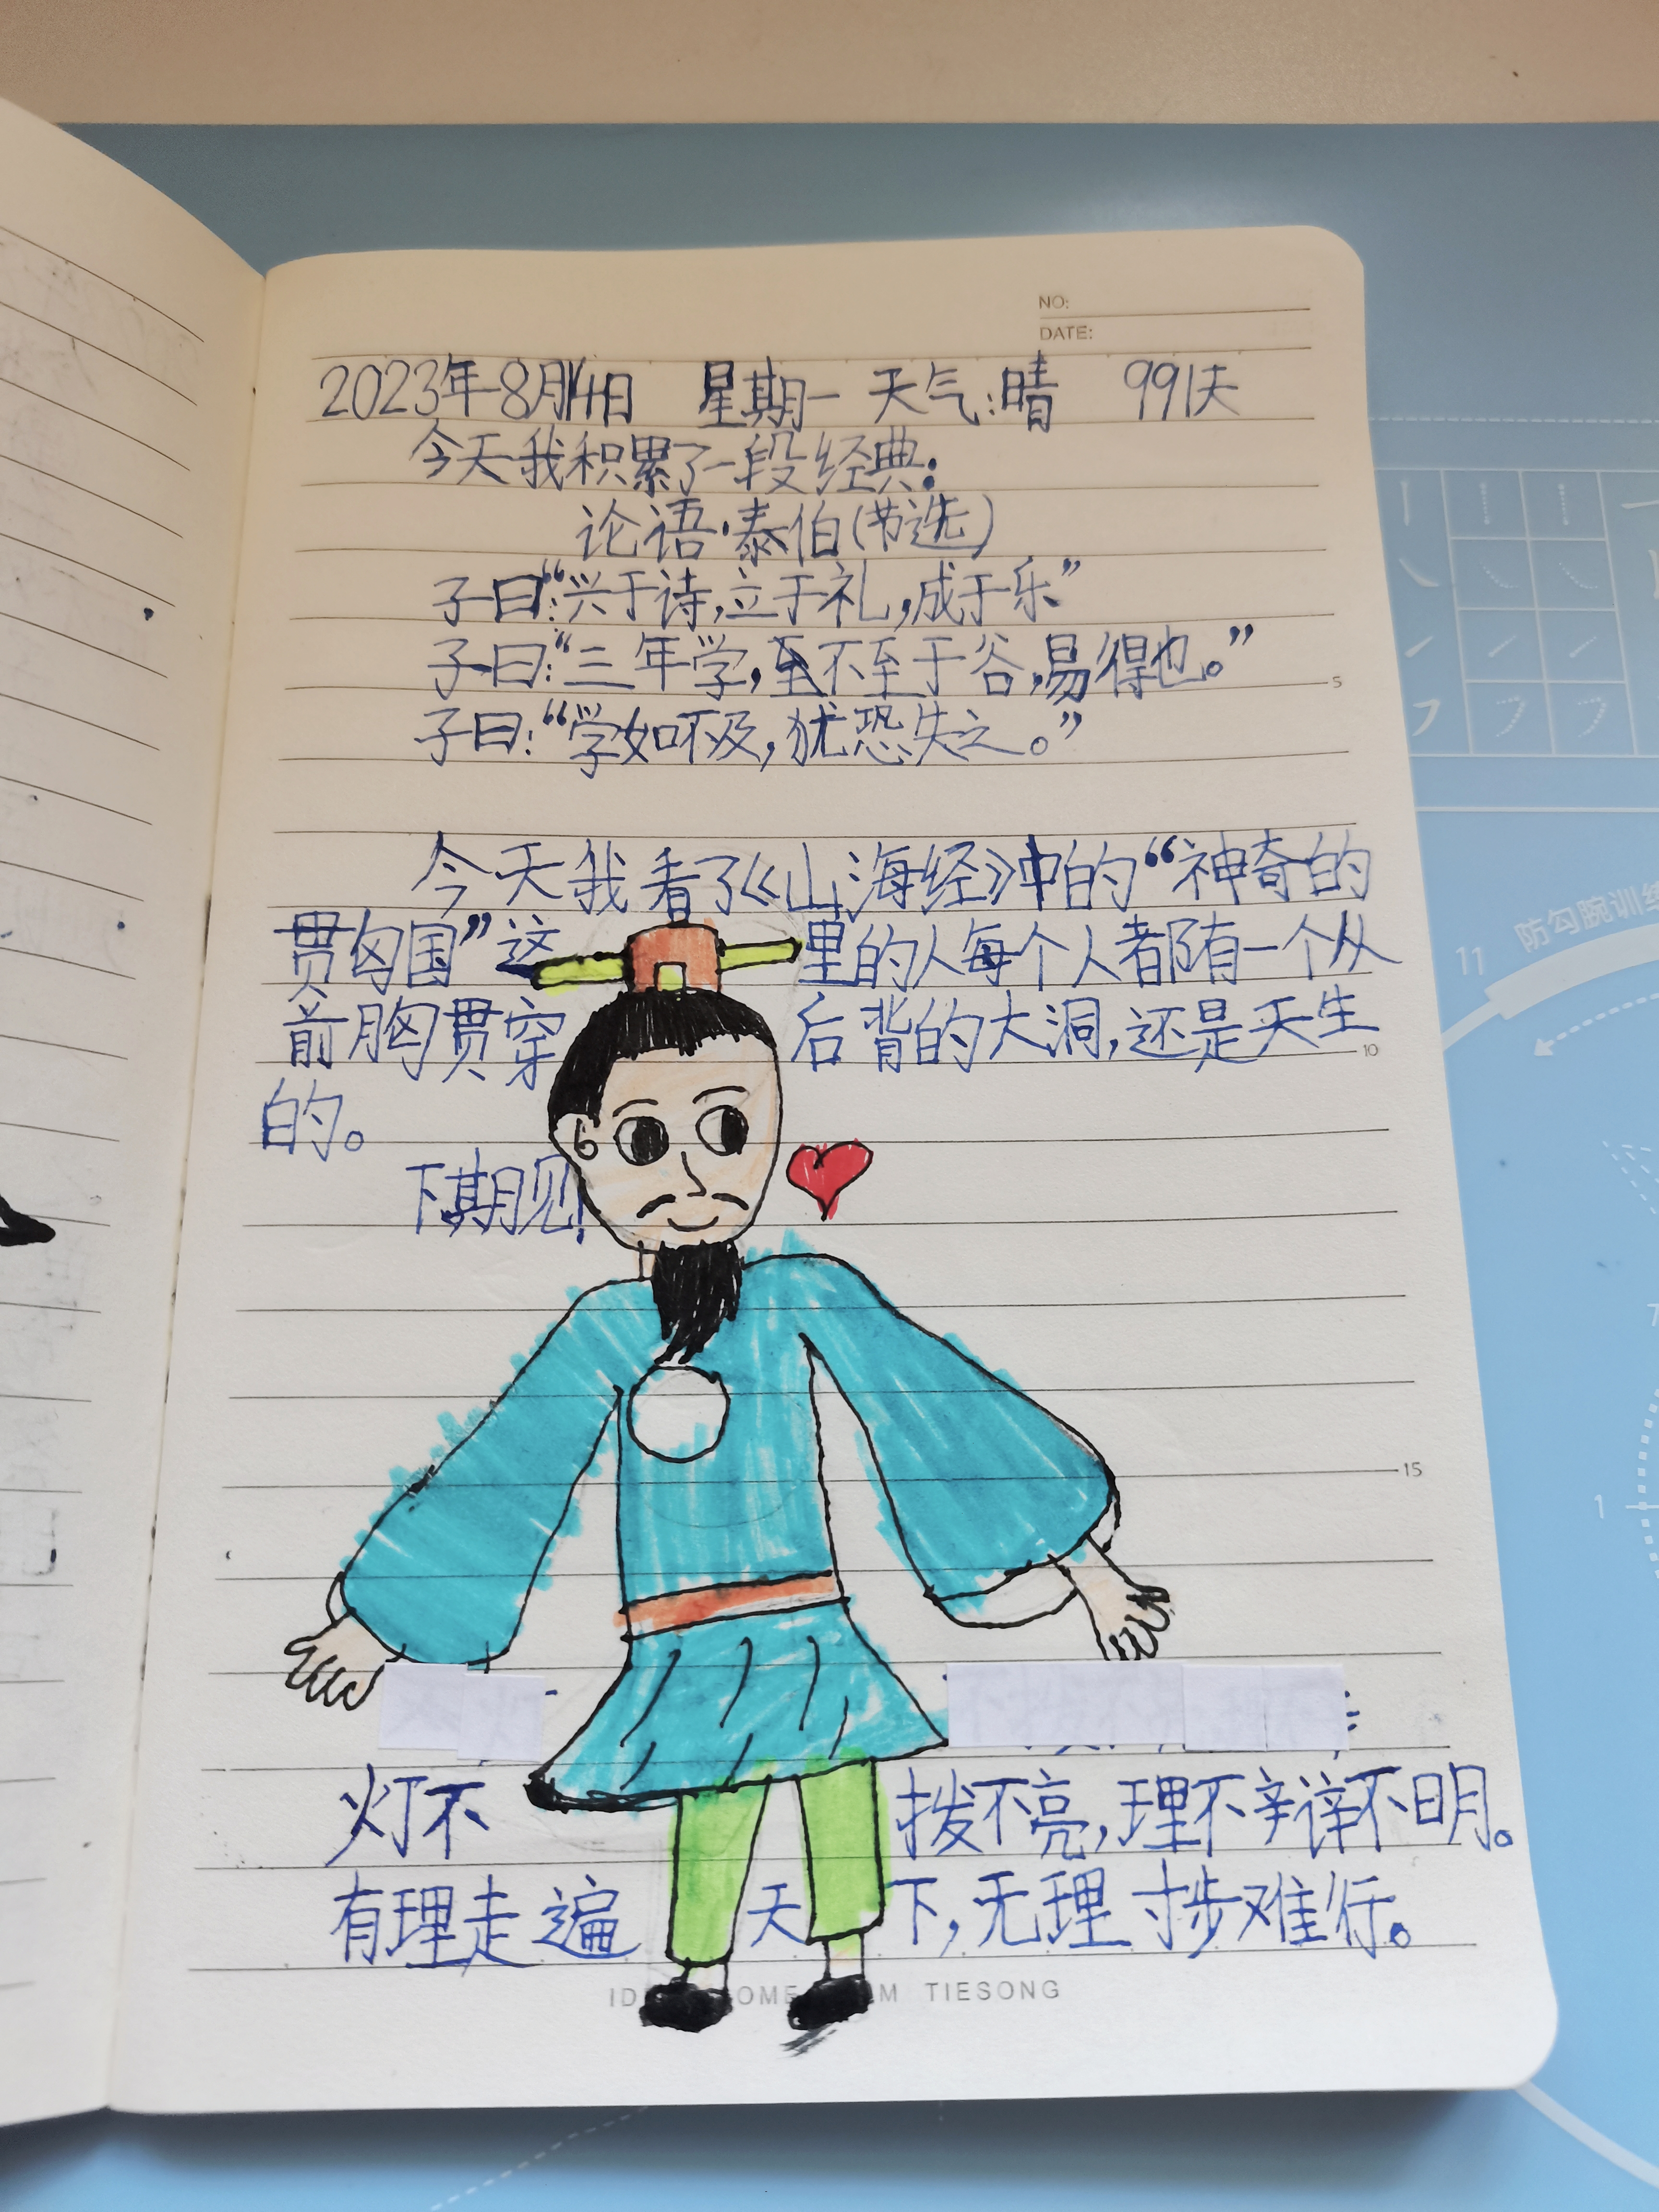 NO:
DATE:
2023年8月14日 星期一 天气:晴 991天
今天我积累了一段经典:
论语·泰伯(节选)
子曰:“兴于诗,立于礼,成于乐”
子曰:“三年学,至不至于谷,易得也。”
子曰:“学如不及,犹恐失之。”
5
今天我看了《山海经》中的“神奇的
贯匈国”这里的人每个人都有一个从
前胸贯穿后背的大洞,还是天生
10
的。
下期见!
15
灯不拨不亮,理不辩不明。
有理走遍天下,无理寸步难行。
TIESONG
11 防勾腕训练
1
7